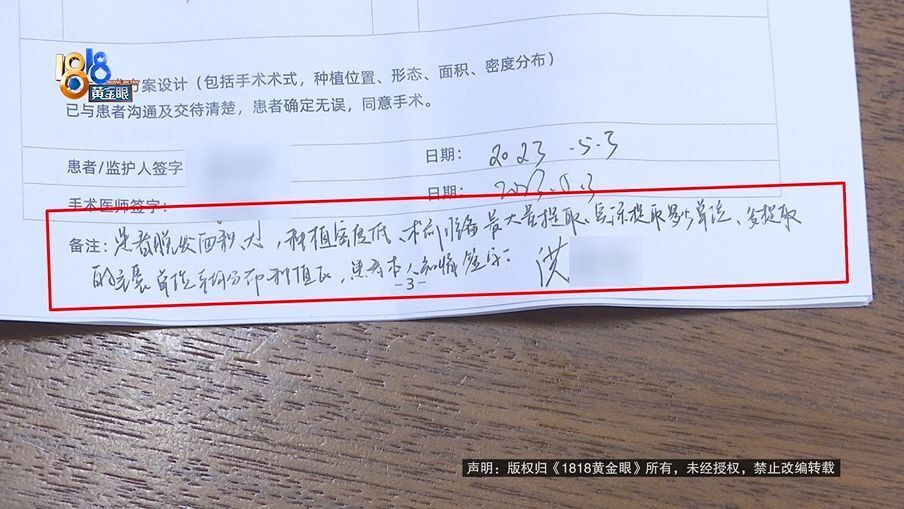 1818
黄金眼
方案设计（包括手术术式，种植位置、形态、面积、密度分布）
已与患者沟通及交待清楚，患者确定无误，同意手术。
患者/监护人签字
日期： 2023.5.3
手术医师签字：
日期： 2023.5.3
备注：患者脱发面积大，种植密度低、术前准备最大量提取、
单位 种植区，患者本人知情签字： 洪
-3-
声明：版权归《1818黄金眼》所有，未经授权，禁止改编转载